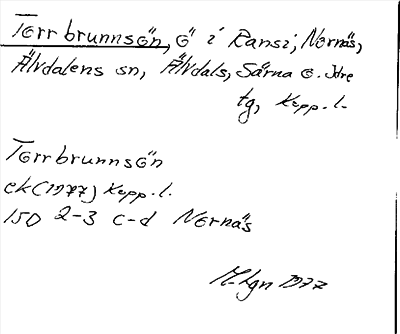 Torrbrunnsön, Ö i Ransi, Nornäs,
Älvdalens sn, Älvdals, Särna o. Idre
tg, Kopp. l.
Torrbrunnsön
ek (1977) Kopp. l.
150 2-3 c-d Nornäs
1977